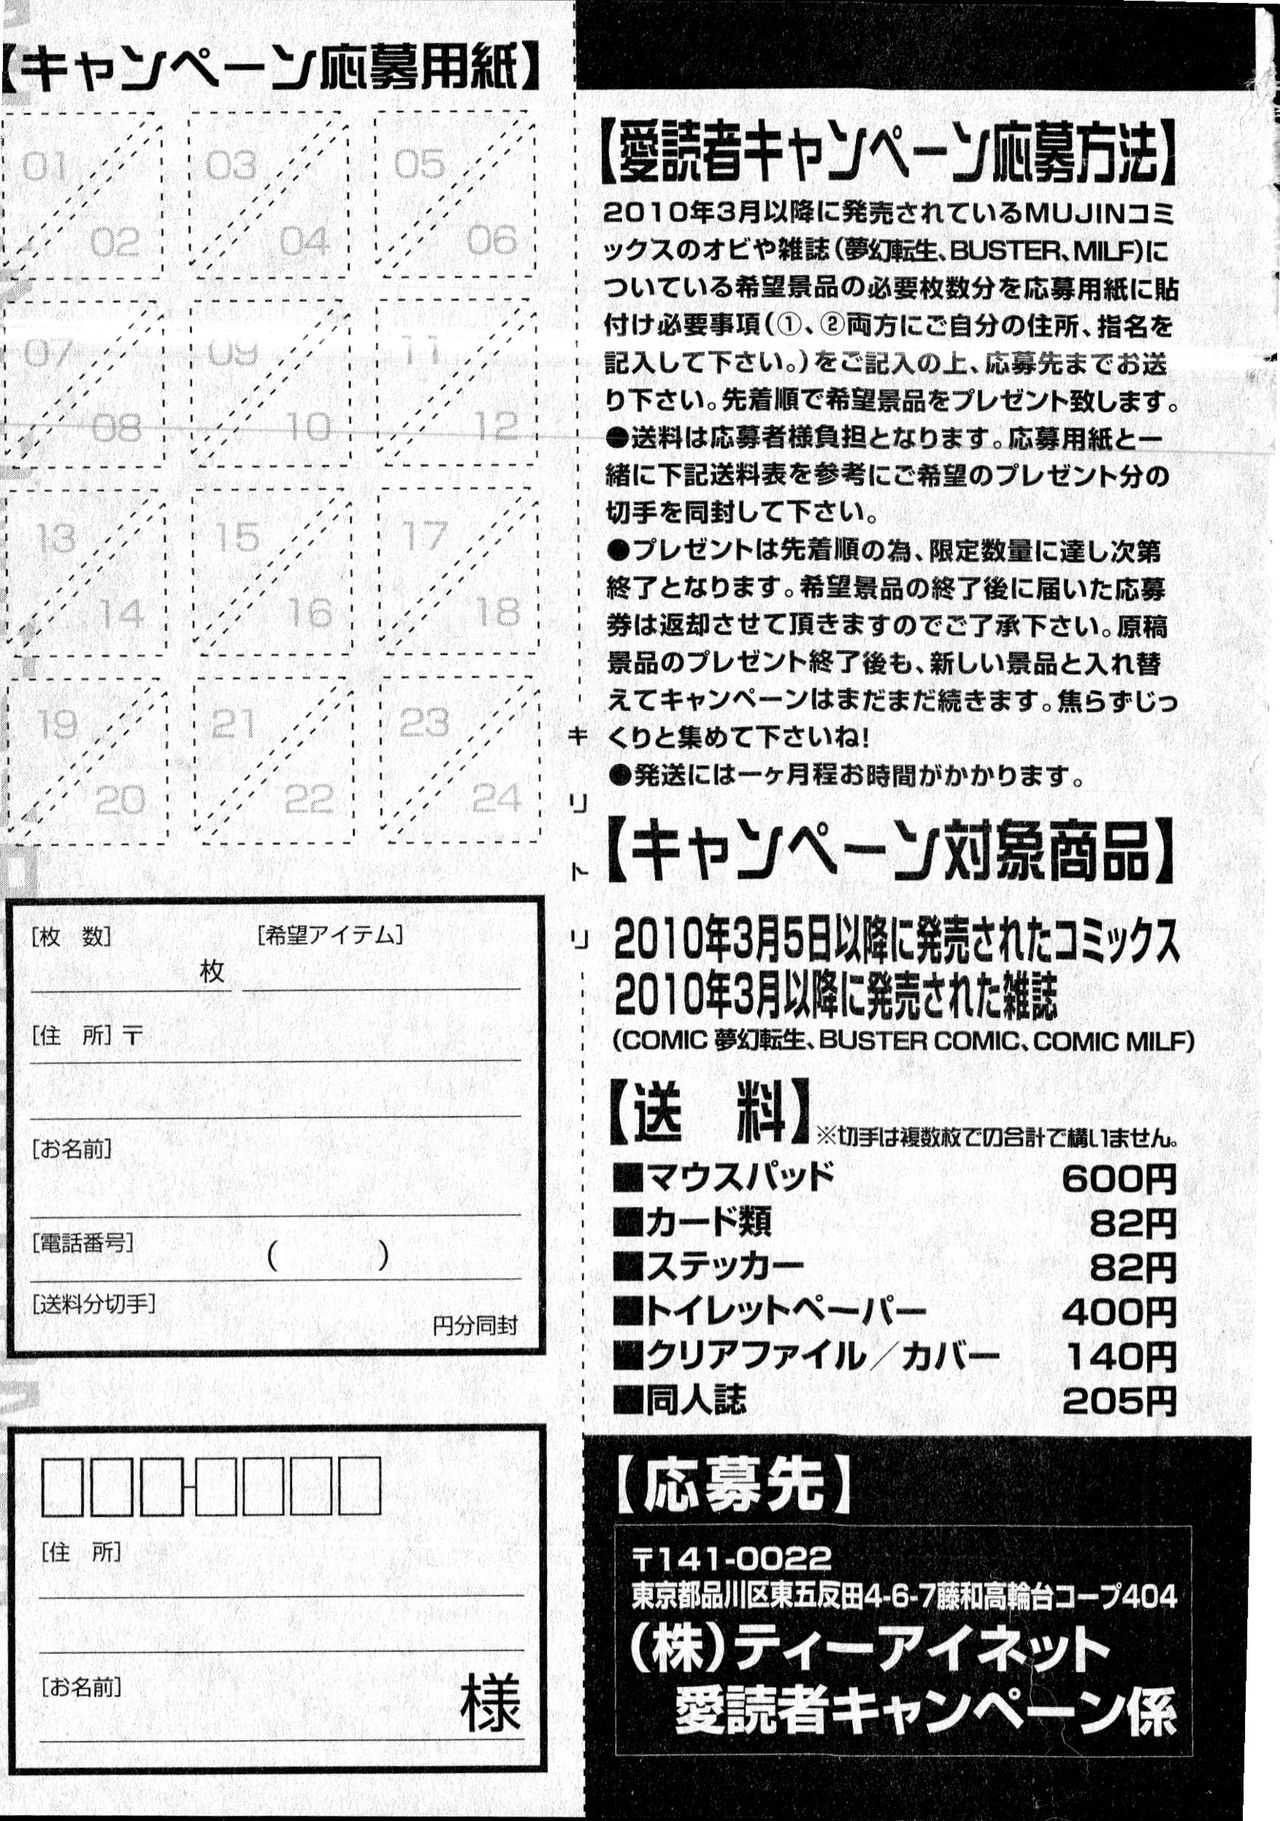 【キャンペーン応募用紙】
01
02
03
04
05
06
07
08
09
10
11
12
13
14
15
16
17
18
19
20
21
22
23
24
キリトリ
[枚　数]
枚
[希望アイテム]
[住　所]〒
[お名前]
[電話番号]
(　　　)
[送料分切手]
円分同封
[住　所]
[お名前]
様
【愛読者キャンペーン応募方法】
2010年3月以降に発売されているMUJINコミ
ックスのオビや雑誌(夢幻転生、BUSTER、MILF)に
ついている希望景品の必要枚数分を応募用紙に貼
付け必要事項(①、②両方にご自分の住所、指名を
記入して下さい。)をご記入の上、応募先までお送
り下さい。先着順で希望景品をプレゼント致します。
●送料は応募者様負担となります。応募用紙と一
緒に下記送料表を参考にご希望のプレゼント分の
切手を同封して下さい。
●プレゼントは先着順の為、限定数量に達し次第
終了となります。希望景品の終了後に届いた応募
券は返却させて頂きますのでご了承下さい。原稿
景品のプレゼント終了後も、新しい景品と入れ替
えてキャンペーンはまだまだ続きます。焦らずじっ
くりと集めて下さいね!
●発送には一ヶ月程お時間がかかります。
【キャンペーン対象商品】
2010年3月5日以降に発売されたコミックス
2010年3月以降に発売された雑誌
(COMIC 夢幻転生、BUSTER COMIC、COMIC MILF)
【送　料】※切手は複数枚での合計で構いません。
■マウスパッド 600円
■カード類 82円
■ステッカー 82円
■トイレットペーパー 400円
■クリアファイル／カバー 140円
■同人誌 205円
【応募先】
〒141-0022
東京都品川区東五反田4-6-7藤和高輪台コープ404
(株)ティーアイネット
愛読者キャンペーン係